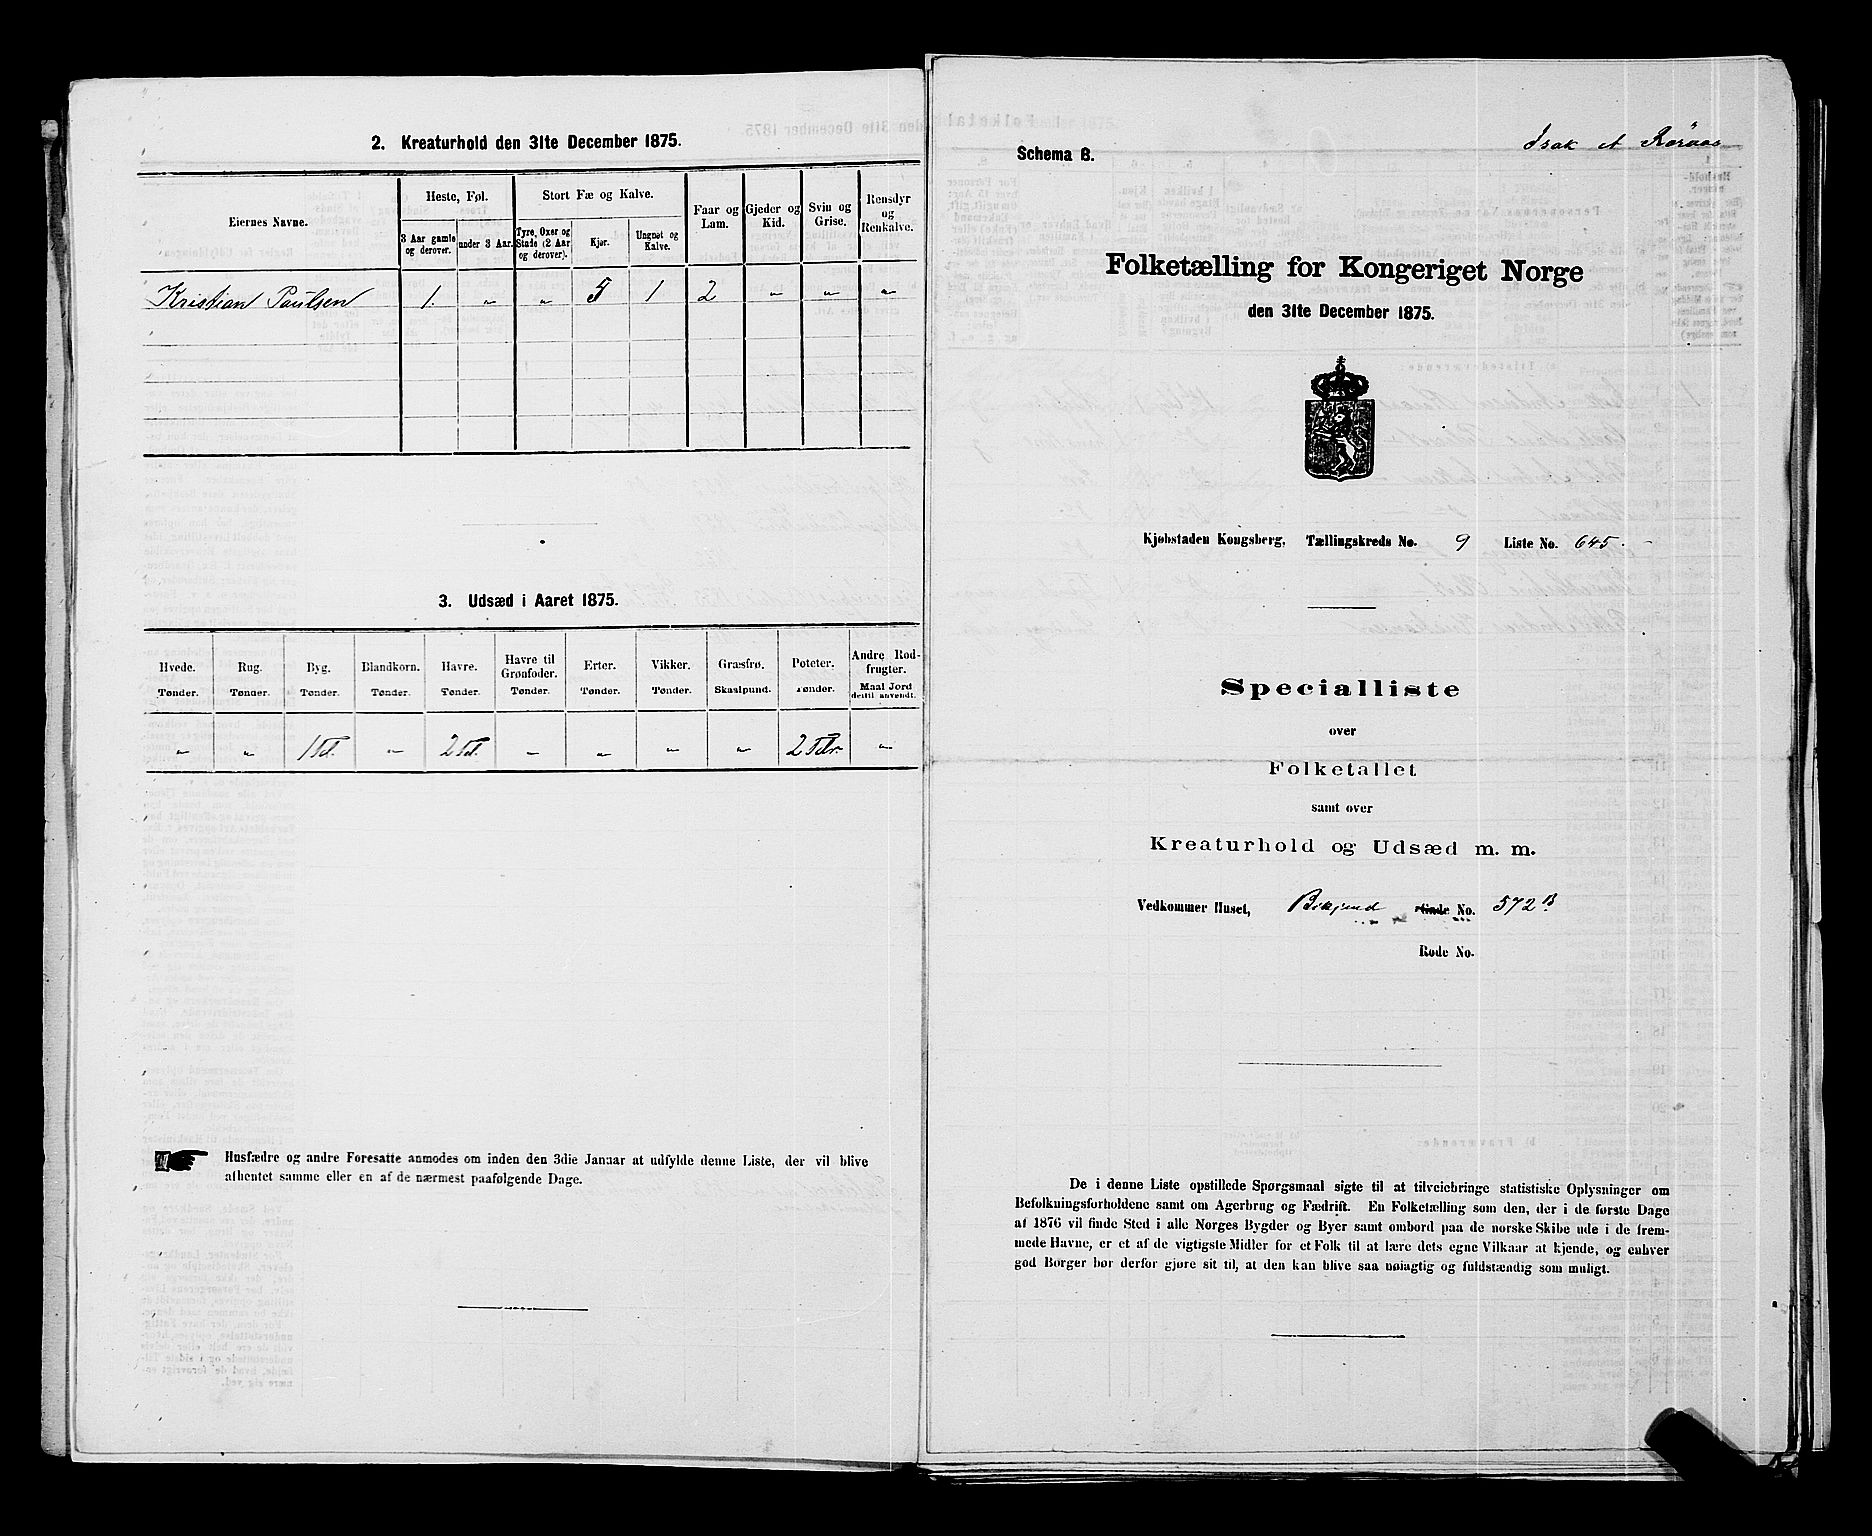 2. Kreaturhold den 31te December 1875.
Eiernes Navne.
Heste, Føl.
Stort Fæ og Kalve.
Faar og Lam.
Gjeder og Kid.
Svin og Grise.
Rensdyr og Renkalve.
3 Aar gamle og derover.
under 3 Aar.
Tyre, Oxer og Stude (2 Aar og derover).
Kjør.
Ungnøt og Kalve.
Kristian Paulsen 1. " " 5 1 2 " " "
3. Udsæd i Aaret 1875.
Hvede. Rug. Byg. Blandkorn. Havre. Havre til Grønfoder. Erter. Vikker. Græsfrø. Poteter. Andre Rodfrugter.
Tønder. Tønder. Tønder. Tønder. Tønder. Tønder. Tønder. Tønder. Skaalpund. Tønder. Maal Jord dertil anvendt.
" " 1 Td. " 2 Td. " " " " 2 Tdr. "
Husfædre og andre Foresatte anmodes om inden den 3die Januar at udfylde denne Liste, der vil blive
afhentet samme eller en af de nærmest paafølgende Dage.
Isak A Røraas
Schema B.
Folketælling for Kongeriget Norge
den 31te December 1875.
Kjøbstaden Kongsberg, Tællingskreds No. 9 Liste No. 645.
Specialliste
over
Folketallet
samt over
Kreaturhold og Udsæd m. m.
Vedkommer Huset, No. 572 B
Rode No.
De i denne Liste opstillede Spørgsmaal sigte til at tilveiebringe statistiske Oplysninger om
Befolkningsforholdene samt om Agerbrug og Fædrift. En Folketælling som den, der i de første Dage
af 1876 vil finde Sted i alle Norges Bygder og Byer samt ombord paa de norske Skibe ude i de frem-
mede Havne, er et af de vigtigste Midler for et Folk til at lære dets egne Vilkaar at kjende, og enhver
god Borger bør derfor gjøre sit til, at den kan blive saa nøiagtig og fuldstændig som muligt.